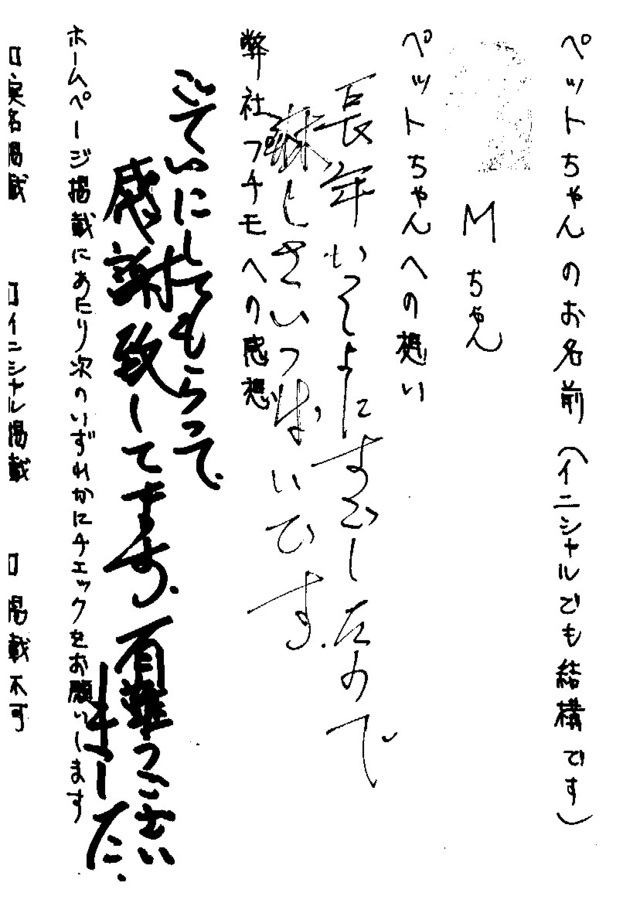 ペットちゃんのお名前(イニシャルでも結構です)
Mちゃん
ペットちゃんへの想い
長年いっしょにすごしたので
淋しさいっぱいです。
弊社プチモへの感想
ごていにしてもらって、
感謝致してます。有難うござい
ました。
ホームページ掲載にあたり次のいずれかにチェックをお願いします
□実名掲載 □イニシャル掲載 □掲載不可